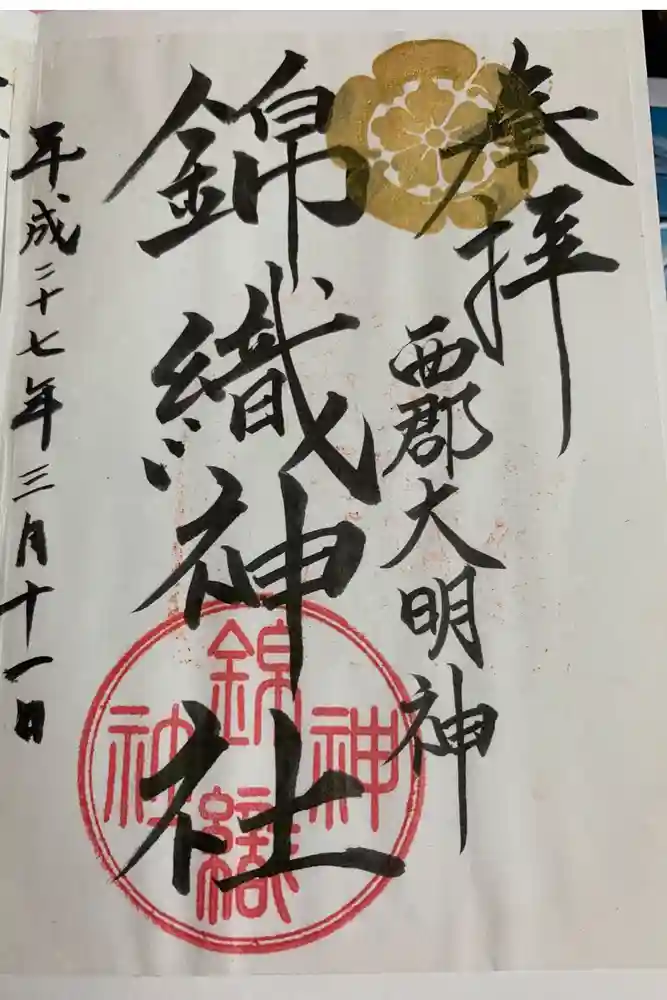 奉拝
西郡大明神
錦織神社
平成二十七年三月十一日
錦織神社